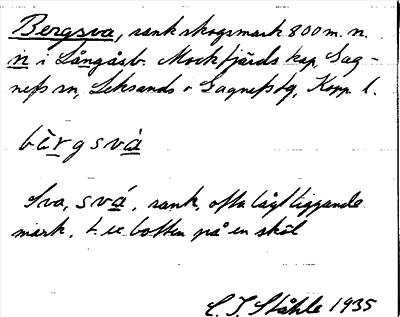 Bergsva, sank skogsmark 800 m. n.
n i Långåsb. Mockfjärds kap, Gag-
nefs sn, Leksands o Gagnefs tg, Kopp. l.
bärgsvá
Sva, svá, sank, ofta lågt liggande
mark, botten på en skål
C. I. Ståhle 1935